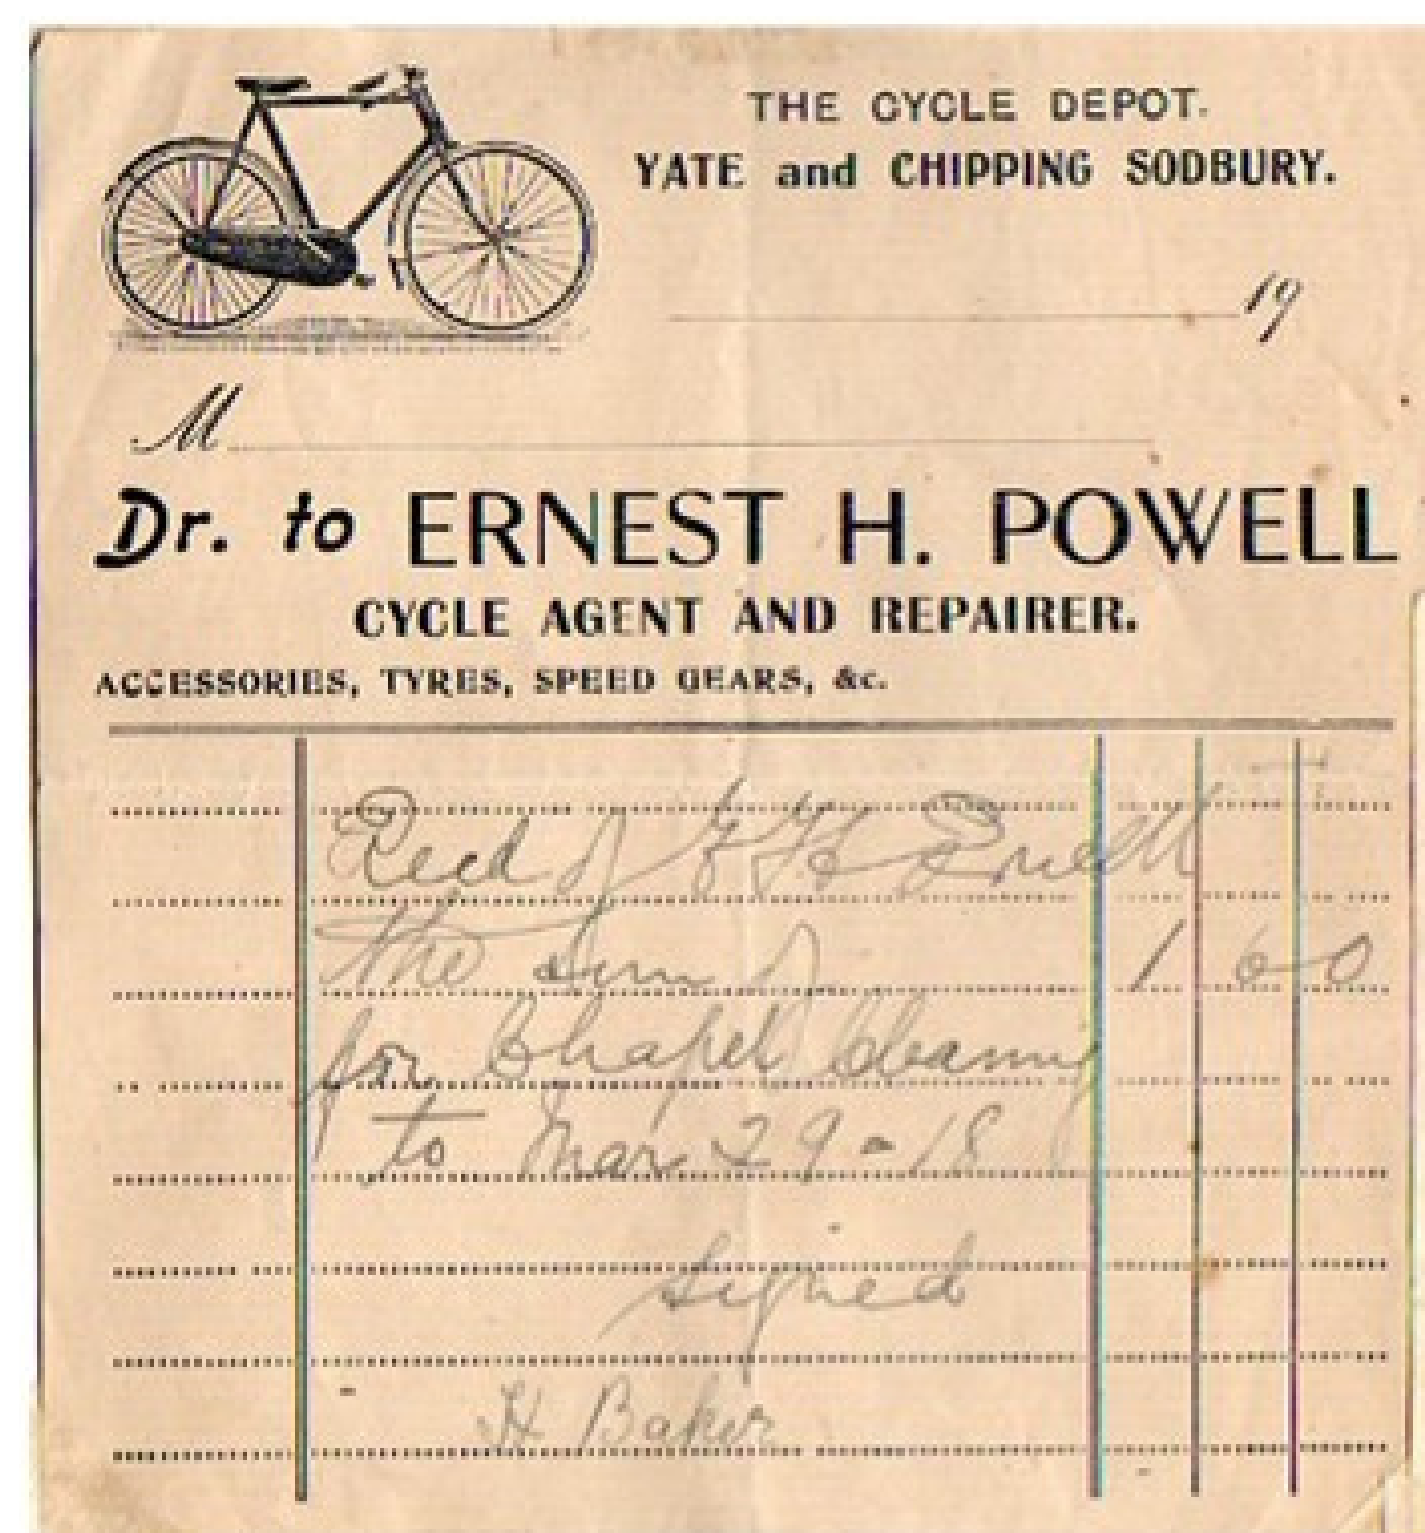 THE CYCLE DEPOT.
YATE and CHIPPING SODBURY.
19
M
Dr. to ERNEST H. POWELL
CYCLE AGENT AND REPAIRER.
ACCESSORIES, TYRES, SPEED GEARS, &c.
Recd of H
the Sum of 1 6 0
for Chapel Cleaning
to Mar 29 - 18
Signed
H Baker